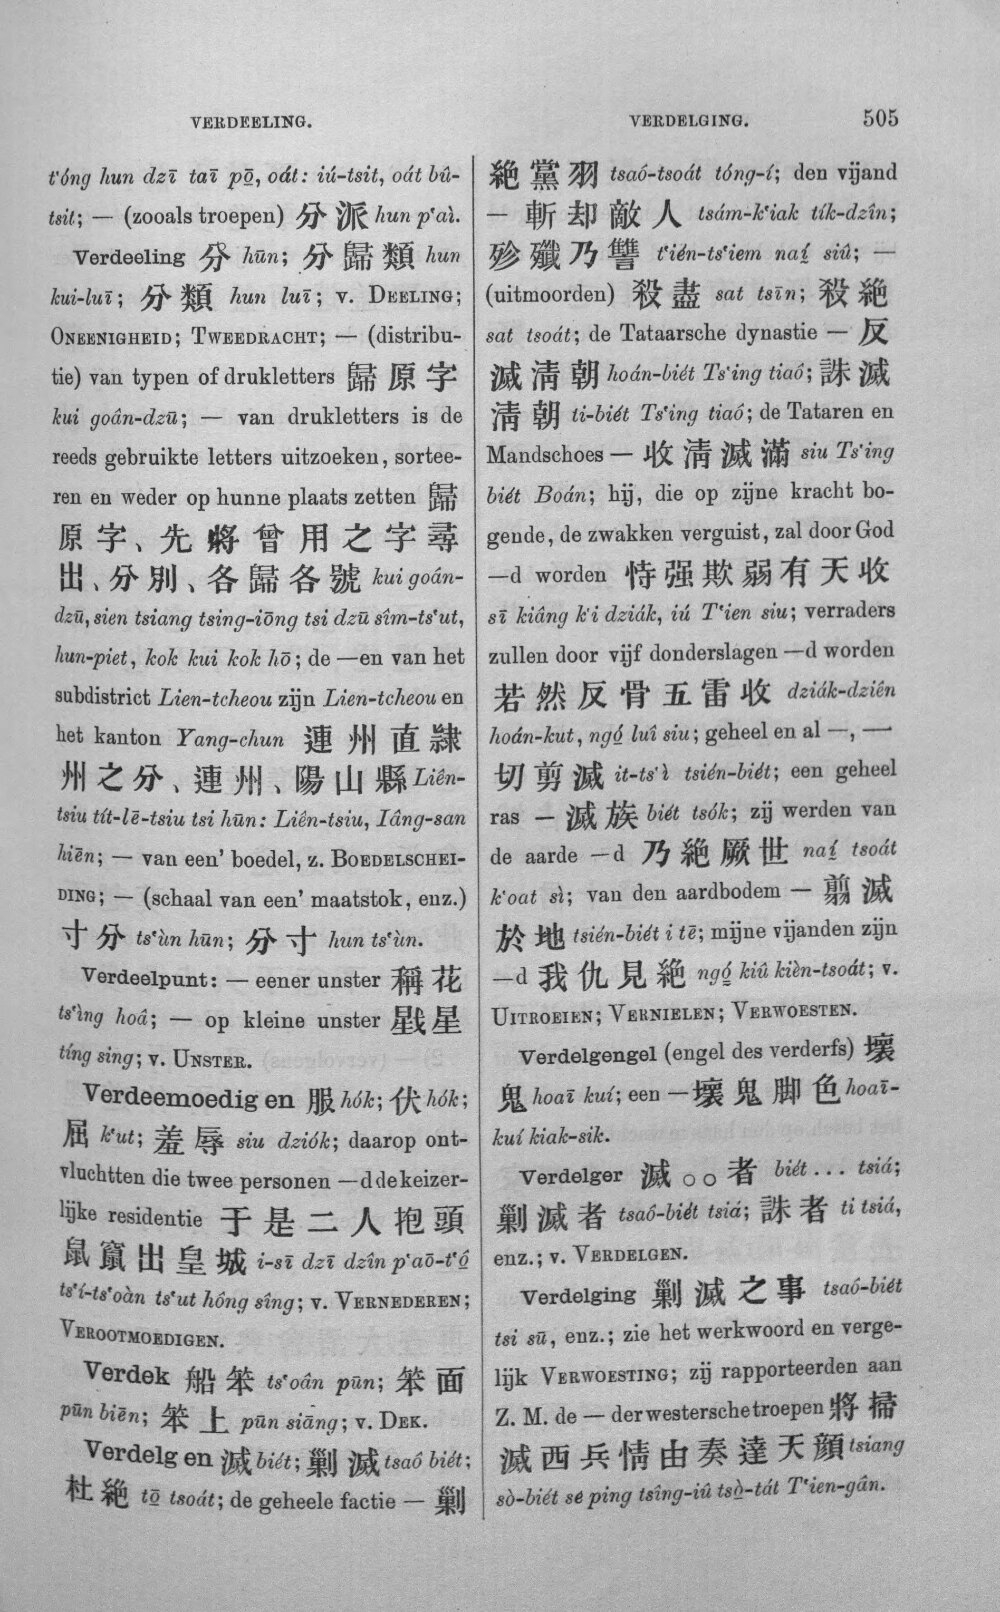 VERDEELING.
VERDELGING. 505
t‘óng hun dzī taī pō̤, oát: iú-tsit, oát bû-
tsit; — (zooals troepen) 分派 hun p‘aì.
Verdeeling 分 hūn; 分歸類 hun
kui-luī; 分類 hun luī; v. DEELING;
ONEENIGHEID; TWEEDRACHT; — (distribu-
tie) van typen of drukletters 歸原字
kui goân-dzū; — van drukletters is de
reeds gebruikte letters uitzoeken, sortee-
ren en weder op hunne plaats zetten 歸
原字、先將曾用之字尋
出、分別、各歸各號 kui goân-
dzū, sien tsiang tsing-iōng tsi dzū sîm-ts‘ut,
hun-piet, kok kui kok hō; de —en van het
subdistrict Lien-tcheou zijn Lien-tcheou en
het kanton Yang-chun 連州直隷
州之分、連州、陽山縣 Liên-
tsiu tít-lē-tsiu tsi hūn: Liên-tsiu, Iâng-san
hiēn; — van een’ boedel, z. BOEDELSCHEI-
DING; — (schaal van een’ maatstok, enz.)
寸分 ts‘ùn hūn; 分寸 hun ts‘ùn.
Verdeelpunt: — eener unster 稱花
ts‘ìng hoâ; — op kleine unster 戥星
tíng sing; v. UNSTER.
Verdeemoedigen 服 hók; 伏 hók;
屈 k‘ut;羞辱 siu dziók; daarop ont-
vluchtten die twee personen —d de keizer-
lijke residentie 于是二人抱頭
鼠竄出皇城 i-sī dzī dzîn p‘aō-t‘ô̤
ts‘í-ts‘oàn ts‘ut hông sîng; v. VERNEDEREN;
VEROOTMOEDIGEN.
Verdek 船笨 ts‘oân pūn; 笨面
pūn biēn; 笨上 pūn siāng; v. DEK.
Verdelgen 滅 biét; 剿滅 tsaó biét;
杜絕 tō̤ tsoát; de geheele factie — 剿
絕黨羽 tsaó-tsoát tóng-í; den vijand
— 斬却敵人 tsám-k‘iak tík-dzîn;
殄殲乃讐 t‘ién-ts‘iem naí̤ siû; —
(uitmoorden) 殺盡 sat tsīn; 殺絕
sat tsoát; de Tataarsche dynastie — 反
滅清朝 hoán-biét Ts‘ing tiaô; 誅滅
清朝 ti-biét Ts‘ing tiaô; de Tataren en
Mandschoes — 收清滅滿 siu Ts‘ing
biét Boán; hij, die op zijne kracht bo-
gende, de zwakken verguist, zal door God
—d worden 恃强欺弱有天收
sī kiâng k‘i dziák, iú T‘ien siu; verraders
zullen door vijf donderslagen —d worden
若然反骨五雷收 dziák-dziên
hoán-kut, ngó̤ luî siu; geheel en al —, —
切剪滅 it-ts‘ì tsién-biét; een geheel
ras — 滅族 biét tsók; zij werden van
de aarde —d 乃絕厥世 naí̤ tsoát
k‘oat sì; van den aardbodem — 翦滅
於地 tsién-biét i tē; mijne vijanden zijn
—d 我仇見絕 ngó̤ kiû kièn-tsoát; v.
UITROEIEN; VERNIELEN; VERWOESTEN.
Verdelgengel (engel des verderfs) 壞
鬼 hoaī kuí; een — 壞鬼脚色 hoaī-
kuí kiak-sik.
Verdelger 滅○○者 biét . . . tsiá;
剿滅者 tsaó-biét tsiá; 誅者 ti tsiá,
enz.; v. VERDELGEN.
Verdelging 剿滅之事 tsaó-biét
tsi sū, enz.; zie het werkwoord en verge-
lijk VERWOESTING; zij rapporteerden aan
Z. M. de — der westersche troepen 將掃
滅西兵情由奏達天顏 tsiang
sò-biét se ping tsîng-iû tsò̤-tát T‘ien-gân.